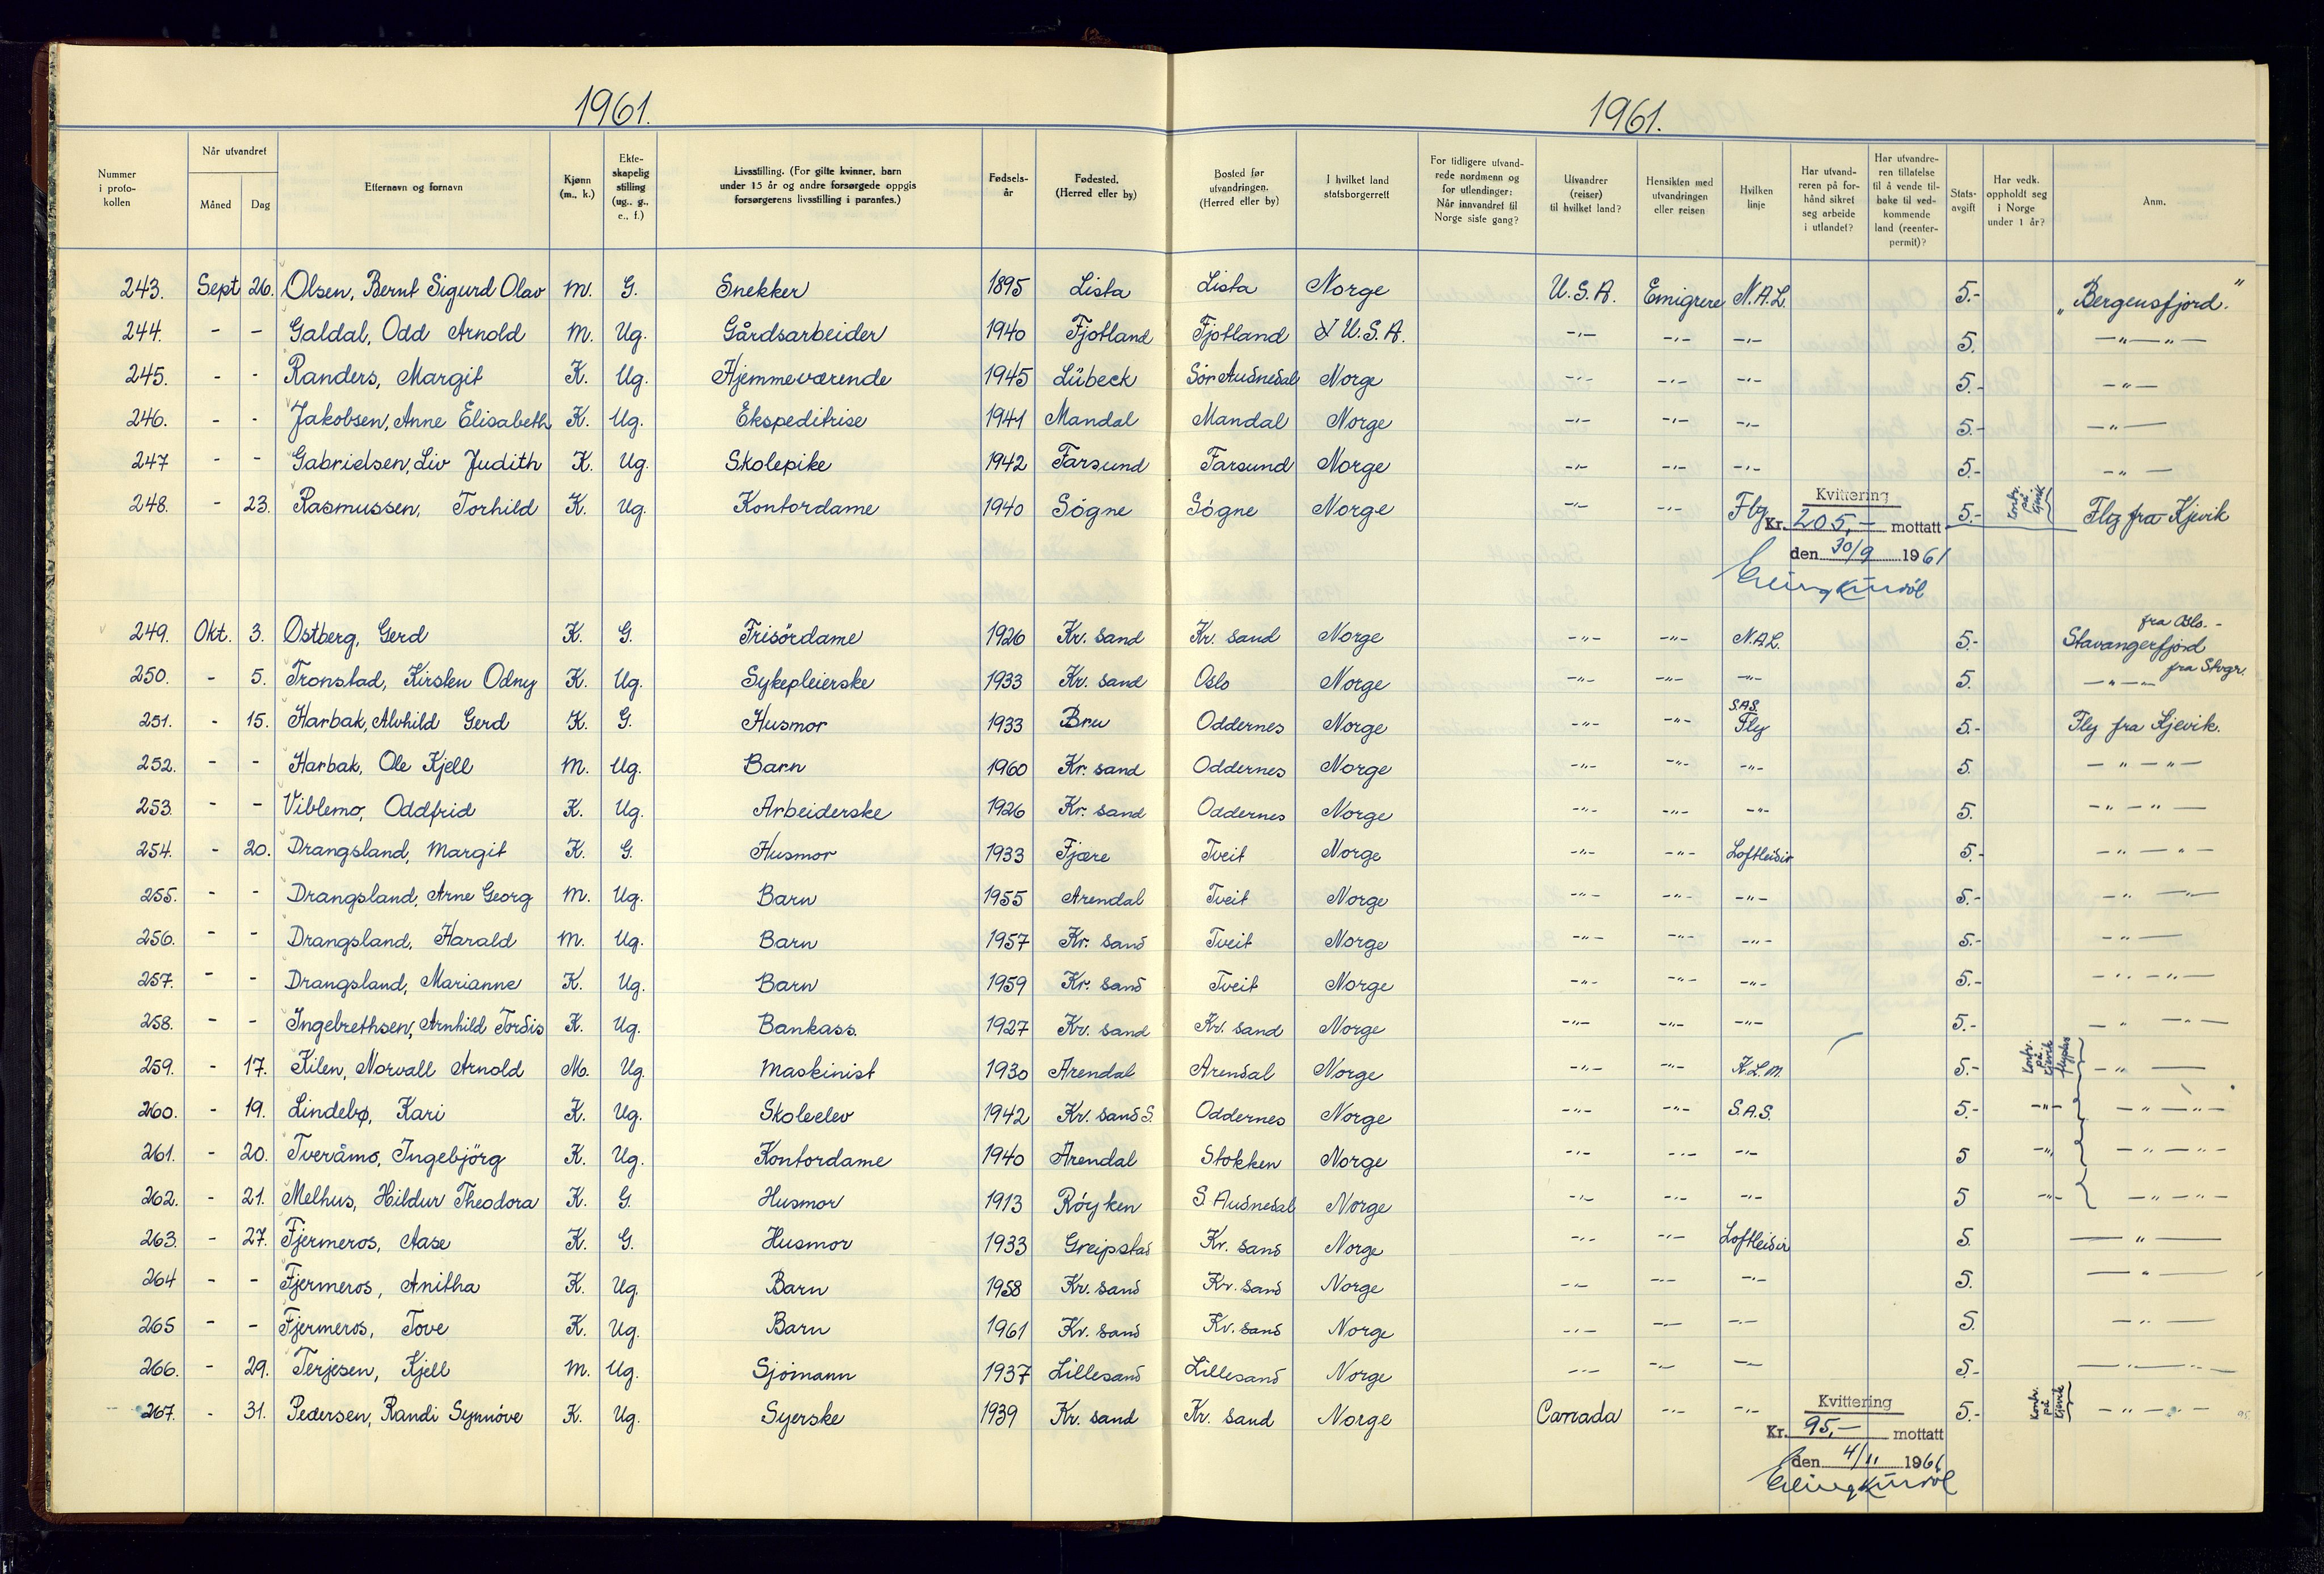 1961.
1961.
Nummer i proto- kollen | Når utvandret | Måned | Dag | Etternavn og fornavn | Kjønn (m., k.) | Ekte- skapelig stilling (ug., g., e., f.) | Livsstilling. (For gifte kvinner, barn under 15 år og andre forsørgede oppgis forsørgerens livsstilling i parantes.) | Fødsels- år | Fødested. (Herred eller by) | Bosted før utvandringen. (Herred eller by) | I hvilket land statsborgerrett | For tidligere utvand- rede nordmenn og for utlendinger: Når innvandret til Norge siste gang? | Utvandrer (reiser) til hvilket land? | Hensikten med utvandringen eller reisen | Hvilken linje | Har utvand- reren på for- hånd sikret seg arbeide i utlandet? | Har utvandre- ren tillatelse til å vende til- bake til ved- kommende land (reenter- permit)? | Stats- avgift | Har vedk. oppholdt seg i Norge under 1 år? | Anm.
243. Sept 26. Olsen, Bernt Sigurd Olav m. G. Snekker 1895 Lista Lista Norge U.S.A. Emigrere N.A.L. 5.- „Bergensfjord."
244. - - Galdal, Odd Arnold m. Ug. Gårdsarbeider 1940 Fjotland Fjotland U.S.A. -"- -"- -"- 5. -"-"-
245. - - Randers, Margit K. Ug. Hjemmeværende 1945 Lübeck Sör Audnedal Norge -"- -"- -"- 5.- -"-
246. - - Jakobsen, Anne Elisabeth K. Ug. Ekspeditrise 1941 Mandal Mandal Norge -"- -"- -"- 5.- -"-
247 - - Gabrielsen, Liv Judith K. Ug. Skolepike 1942 Farsund Farsund Norge -"- -"- -"- 5.- -"-
248. - 23. Rasmussen, Torhild K. Ug. Kontordame 1940 Sögne Sögne Norge -"- -"- Fly 5.- Kontr. på Kjevik Fly fra Kjevik
Kvittering
Kr. 205,- mottatt
den 30/9 1961
249. Okt. 3. Ostberg, Gerd K. G. Frisördame 1926 Kr. sand Kr. sand Norge -"- -"- N.A.L. 5.- fra Oslo. - Stavangerfjord
250. - 5. Tronstad, Kirsten Odny K. Ug. Sykepleierske 1933 Kr. sand Oslo Norge -"- -"- -"- 5. -"- fra Stvgr.
251. - 15. Harbak, Alvhild Gerd K. G. Husmor 1933 Bru Oddernes Norge -"- -"- S.A.S. Fly 5.- Fly fra Kjevik.
252. - - Harbak, Ole Kjell m. Ug. Barn 1960 Kr. sand Oddernes Norge -"- -"- -"- 5. -"-"-
253. - - Viblemo, Oddfrid K. Ug. Arbeiderske 1926 Kr. sand Oddernes Norge -"- -"- -"- 5. -"-"-
254. - 20. Drangsland, Margit K. G. Husmor 1933 Fjære Tveit Norge -"- -"- Loftleidir 5.- -"-"-
255. - - Drangsland, Arne Georg m. Ug. Barn 1955 Arendal Tveit Norge -"- -"- -"- 5.- -"-"-
256. - - Drangsland, Harald m. Ug. Barn 1957 Kr. sand Tveit Norge -"- -"- -"- 5.- -"-
257. - - Drangsland, Marianne K. Ug. Barn 1959 Kr. sand Tveit Norge -"- -"- -"- 5.- -"-"-
258. - - Ingebrethsen, Arnhild Tordis K. Ug. Bankass. 1927 Kr. sand Kr. sand Norge -"- -"- -"- 5.- -"-"-
259. - 17. Kilen, Norvall Arnold M. Ug. Maskinist 1930 Arendal Arendal Norge -"- -"- K.L.M. 5.- Kontr. på Kjevik flyplas -"-
260. - 19. Lindebø, Kari K. Ug. Skoleelev 1942 Kr. sand S. Oddernes Norge -"- -"- S.A.S. 5.- -"- -"-"-
261. - 20. Tveråmo, Ingebjörg K. Ug. Kontordame 1940 Arendal Stokken Norge -"- -"- -"- 5 -"- -"-"-
262. - 21. Melhus, Hildur Theodora K. G. Husmor 1913 Röyken S. Audnedal Norge -"- -"- -"- 5 -"- -"-"-
263. - 27. Fjermeros, Aase K. G. Husmor 1933 Greipstad Kr. sand Norge -"- -"- Loftleidir 5. -"-
264 - - Fjermeros, Anitha K. Ug. Barn 1958 Kr. sand Kr. sand Norge -"- -"- -"- 5. -"-
265 - - Fjermeros, Tove K. Ug. Barn 1961 Kr. sand Kr. sand Norge -"- -"- -"- 5. -"-
266. - 29. Terjesen, Kjell m. Ug. Sjömann 1937 Lillesand Lillesand Norge -"- -"- -"- 5.- -"-"-
267. - 31. Pedersen, Randi Synnöve K. Ug. Syerske 1939 Kr. sand Kr. sand Norge Canada -"- -"- 5.- Kontr. på Kjevik -"-"- 95
Kvittering
Kr. 95,- mottatt
den 4/11 1961